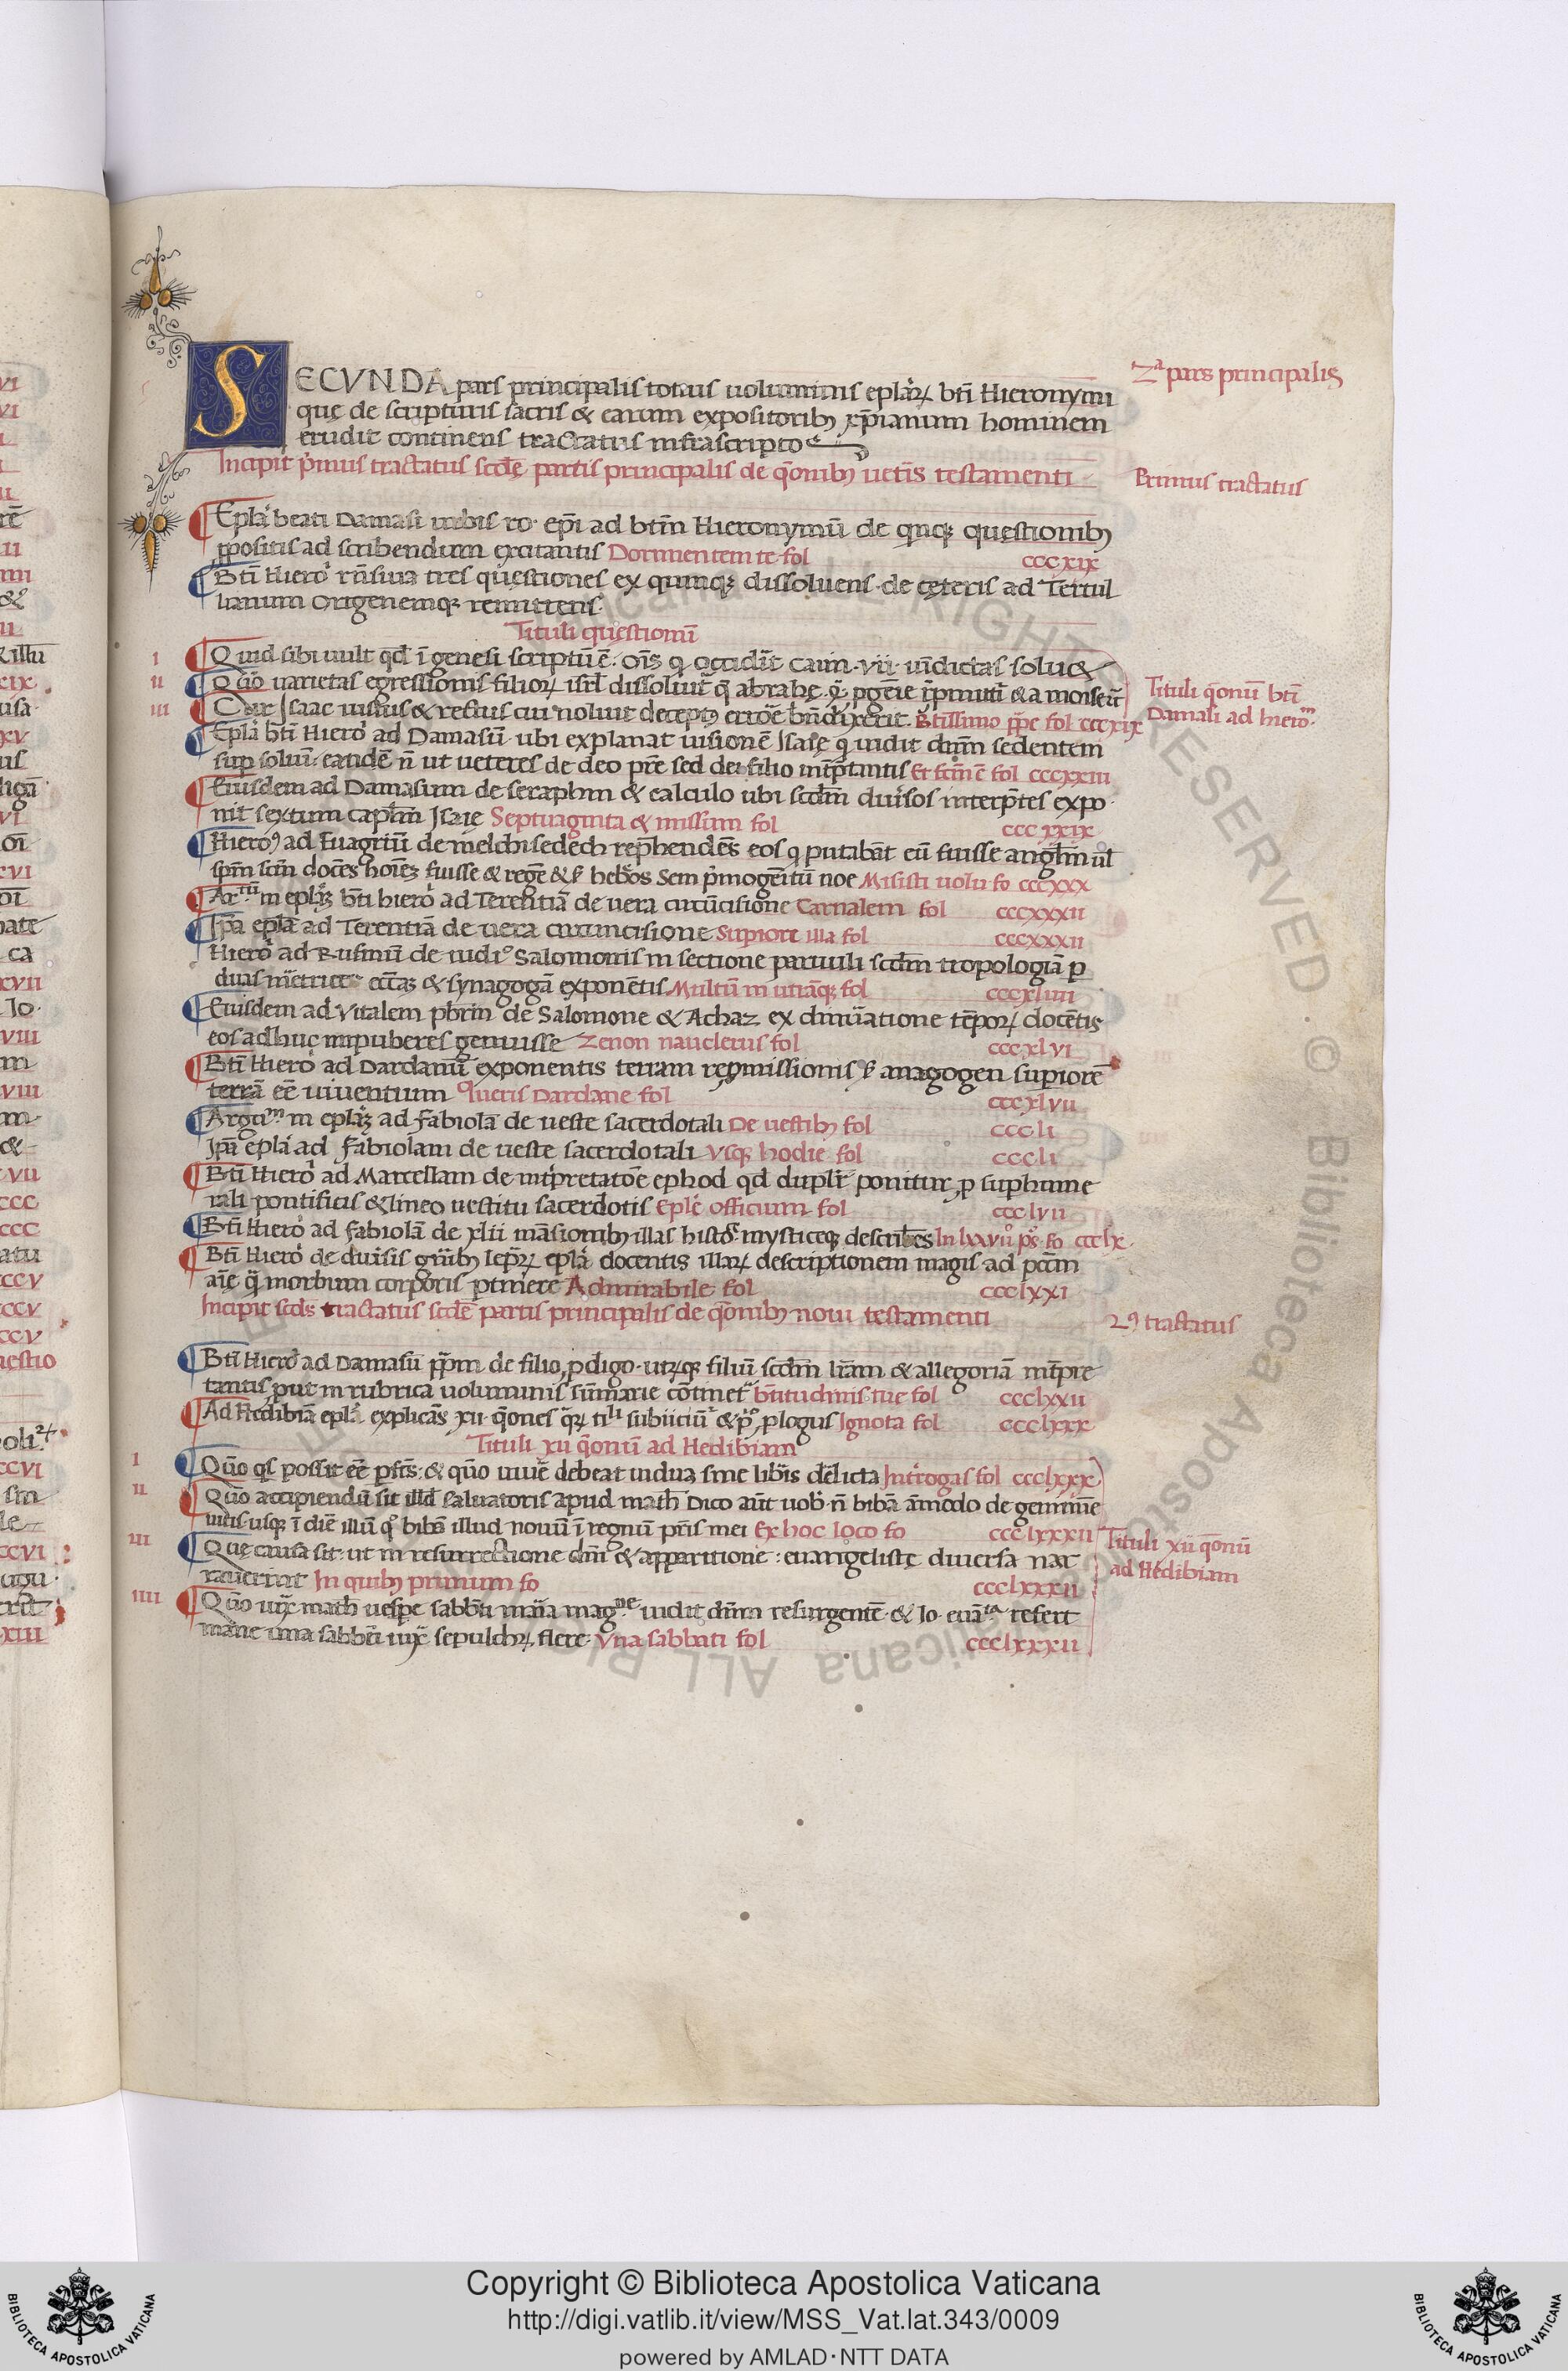 SECVNDA pars principalis totius uoluminis eplaꝝ bti Hieronymi
que de scripturis sacris & earum expositoribꝫ xp̄ianum hominem
erudit continens tractatus infrascripto
Zᵃ pars principalis
Incipit p̄mus tractatus scd̄e partis principalis de q̄onibꝫ ueteris testamenti
Primus tractatus
Epl̄a beati Damasi urbis ro. ep̄i ad btm̄ Hieronymū de qnqꝫ questionibꝫ
ꝓpositis ad scribendum excitantis Dormientem te fol cccxix
Bti Hiero rn̄siua tres questiones ex quinqꝫ dissoluens de ceteris ad Tertul
lianum Origenemqꝫ remittens.
Tituli questionū
i Quid sibi uult qd̄ ī genesi scriptū ē: Oīs q occiderit Cain .vii. uīdictas soluet
ii
iii Cur Isaac uir iustus & rectus cui noluit deceptꝰ errore bn̄dixerit. Btissimo pp̄e fol cccxix
Tituli q̄onū bti
Damasi ad hieroᵐ.
Epl̄a bti Hiero ad Damasū ubi explanat uisionē Isaie q uidit dnm̄ sedentem
sup soliū. eandē n̄ ut ueteres de deo pr̄e sed dei filio int̄p̄tantis Et fcm̄ ē fol cccxxiii
Eiusdem ad Damasum de seraphin & calculo ubi scdm̄ diuersos interp̄tes expo
nit sextum caplm̄ Isaie Septuaginta & missum fol cccxxix
Hieroꝰ ad Euagriū de melchisedech rep̄hendēs eos q putabāt eū fuisse anglm̄ ul̄
spm̄ scm̄ docēs hoiēꝫ fuisse & regē & s̄ hebr̄os Sem p̄mogenitū noe Misisti uolu. fo cccxxx
Arᵗᵘᵐ in epl̄aꝫ bti hiero ad Terentiā de uera circūcisione Carnalem fol cccxxxii
Ip̄a epl̄a ad Terentiā de uera circuncisione Superiore illa fol cccxxxii
Hiero ad Rufinū de iudiº Salomonis in sectione paruuli scdm̄ tropologiā p
duas meretrices ecc̄aꝫ & synagogā exponētis Multū in utrāqꝫ fol cccxliiii
Eiusdem ad Vitalem pbrm̄ de Salomone & Achaz ex dinūatione tēpoꝝ docētis
eos adhuc impuberes genuisse Zenon nauclerus fol cccxlvi
Bti Hiero ad Dardanū exponentis terram repmissionis s̄ anagogen supiorē
terrā eē uiuentium Queris Dardane fol cccxlvii
Arguᵐ. in epl̄aꝫ ad Fabiolā de ueste sacerdotali De uestibꝫ fol cccli
Ip̄a epl̄a ad Fabiolam de ueste sacerdotali Vsqꝫ hodie fol cccli
Bti Hiero ad Marcellam de int̄pretatōe ephod qd̄ duplr̄ ponitur, p suphume
rali pontificis & lineo uestitu sacerdotis Eple officium fol ccclvii
Bti Hiero ad Fabiolā de xlii māsionibꝫ illas histoᶜᵉ mysticeqꝫ describēs In lxxviiº psº fo ccclx.
Bti Hiero de diuersis gn̄ibꝫ lepraꝝ epl̄a docentis illaꝝ descriptionem magis ad pctm̄
aīe q̄ morbum corporis ptinere Admirabile fol ccclxxi
Incipit scds tractatus scd̄e partis principalis de q̄onibꝫ noui testamenti
2ꝰ tractatus
Bti Hiero ad Damasū pp̄m de filio, pdigo. utrūqꝫ filiū scdm̄ lr̄am & allegoriā int̄pre
tantis put in rubrica uoluminis sūmarie cōtinet btitudinis tue fol ccclxxii
Ad Hedibiā epl̄a explicās xii q̄ones q̄ꝝ tiˡⁱ subiiciūt & pº, plogus Ignota fol ccclxxx
Tituli xii q̄onū ad Hedibiam
i Quō qs possit eē pfcs̄: & quō uiue debeat uidua sine libis derelicta Interrogas fol ccclxxx
ii Quō accipiendū sit illd̄ saluatoris apud math̄ Dico aūt uob̄ n̄ bibā āmodo de genimīe
uitis usqꝫ ī diē illū qº bibā illud nouū ī regnū pr̄is mei Ex hoc loco fo ccclxxxii
iii Que causa sit ut in resurrectione dn̄i & apparitione: euangeliste diuersa nar
rauerint In quibꝫ primum fo ccclxxxii
Tituli xii q̄onū
ad Hedibiam
iiii Quō iuxᵉ math̄ uespe sabbati maria magⁿᵉ uidit dnm̄ resurgentē. & Io. euāᵗᵃ refert
mane una sabbati iuxᵉ sepulchꝝ flere. Vna sabbati fol ccclxxxii
Copyright © Biblioteca Apostolica Vaticana
http://digi.vatlib.it/view/MSS_Vat.lat.343/0009
powered by AMLAD·NTT DATA
BIBLIOTECA APOSTOLICA VATICANA
BIBLIOTECA APOSTOLICA VATICANA